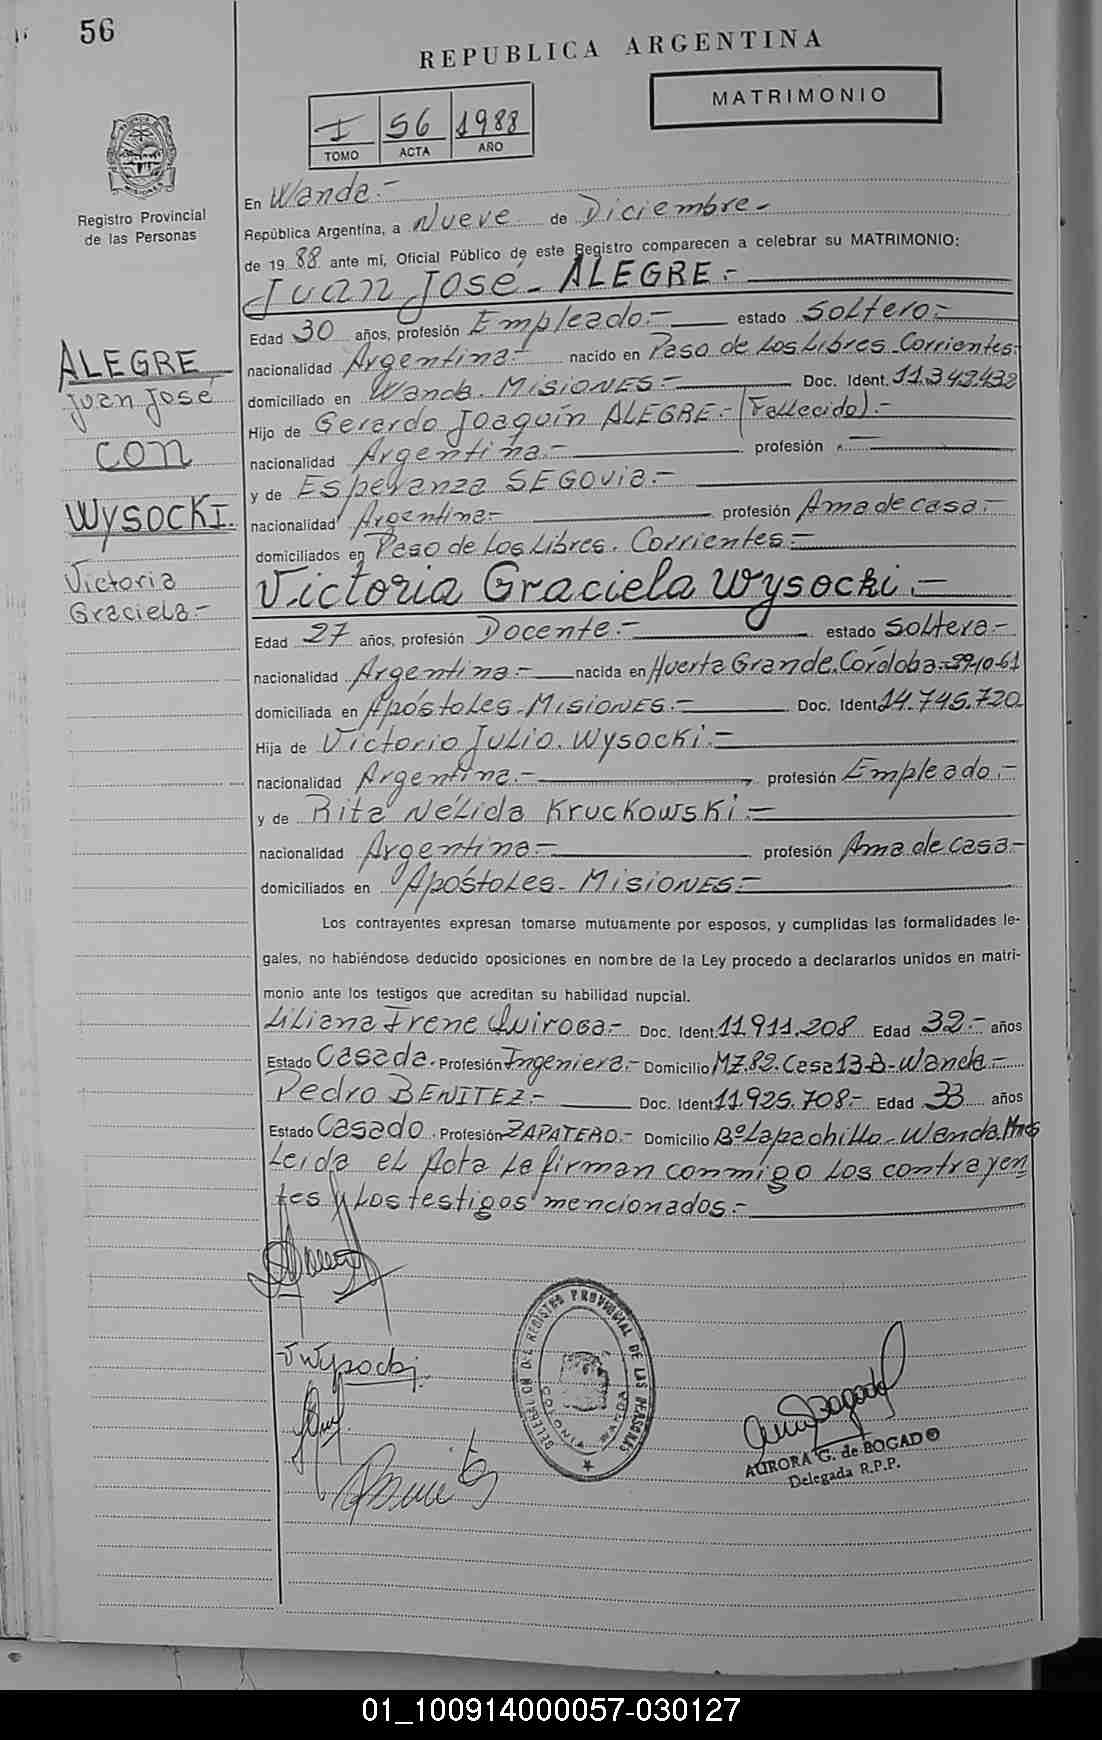 56
REPUBLICA ARGENTINA
MATRIMONIO
I 56 1988
TOMO ACTA AÑO
Registro Provincial
de las Personas
En Wanda.-
República Argentina, a Nueve de Diciembre-
de 19 88 ante mi, Oficial Público de este Registro comparecen a celebrar su MATRIMONIO:
Juan José- ALEGRE.-
Edad 30 años, profesión Empleado.- estado Soltero-
nacionalidad Argentina- nacido en Paso de Los Libres-Corrientes-
domiciliado en Wanda-MISIONES- Doc. Ident. 11.342.432
Hijo de Gerardo Joaquín ALEGRE.-(Fallecido).-
nacionalidad Argentina.- profesión -.-
y de Esperanza SEGOVIA.-
nacionalidad Argentina- profesión Ama de casa.-
domiciliados en Paso de Los Libres. Corrientes-
Victoria Graciela Wysocki.-
Edad 27 años, profesión Docente.- estado Soltera-
nacionalidad Argentina.- nacida en Huerta Grande.Córdoba-29-10-61
domiciliada en Apóstoles-MISIONES.- Doc. Ident 14.745.720
Hija de Victorio Julio. Wysocki.-
nacionalidad Argentina.- profesión Empleado.-
y de Rita Nélida Kruckowski.-
nacionalidad Argentina- profesión Ama de casa-
domiciliados en Apóstoles- MISIONES-
Los contrayentes expresan tomarse mutuamente por esposos, y cumplidas las formalidades le-
gales, no habiéndose deducido oposiciones en nombre de la Ley procedo a declararlos unidos en matri-
monio ante los testigos que acreditan su habilidad nupcial.
Liliana Irene Quiroga- Doc. Ident. 11.911.208 Edad 32.- años
Estado Casada. Profesión Ingeniera.- Domicilio MZ.82.Casa 13-B-Wanda-
Pedro BENITEZ.- Doc. Ident 11.925.708- Edad 33 años
Estado Casado. Profesión ZAPATERO.- Domicilio Bº Lapachillo-Wanda Mnes
Leída el Acta La firman conmigo Los contrayen
tes y Los testigos mencionados.-
ALEGRE
Juan José
CON
WYSOCKI.
Victoria
Graciela-
VWysocki.
DELEGACION DEL REGISTRO PROVINCIAL DE LAS PERSONAS
COLONIA WANDA
AURORA G. de BOGADO
Delegada R.P.P.
01_100914000057-030127